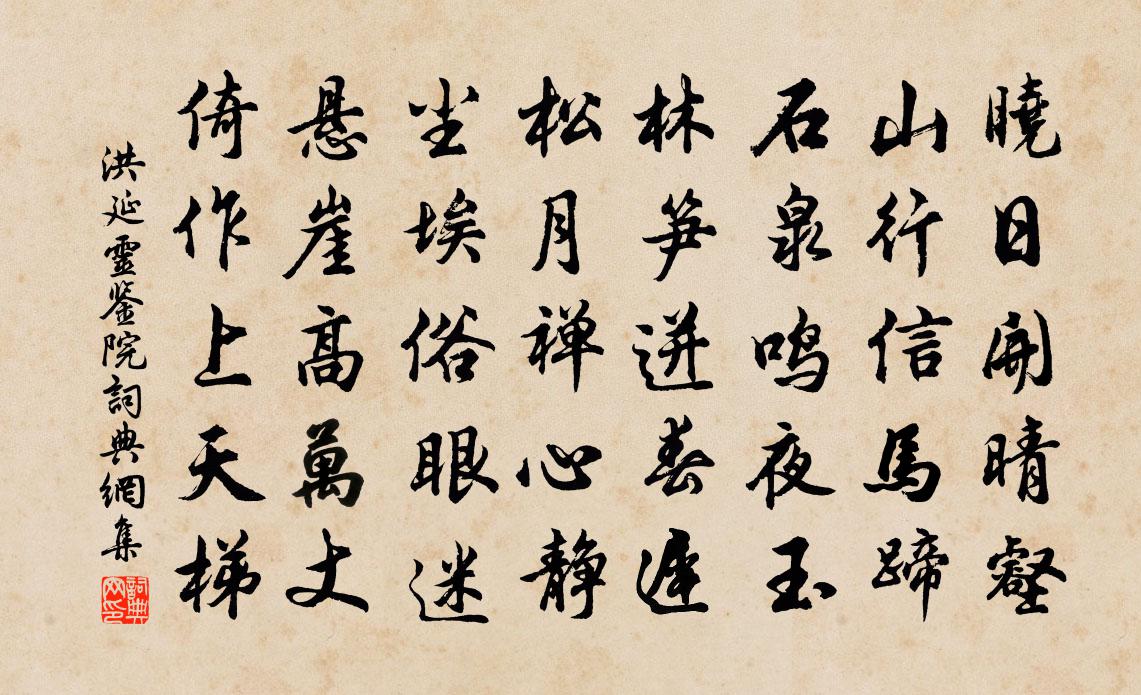 曉日開晴壑
山行信馬蹄
石泉鸣夜玉
林笋迸春遲
松月禅心静
尘埃俗眼迷
悬崖高萬丈
倚作上天梯
洪延靈鉴院詞典網集
詞典网印